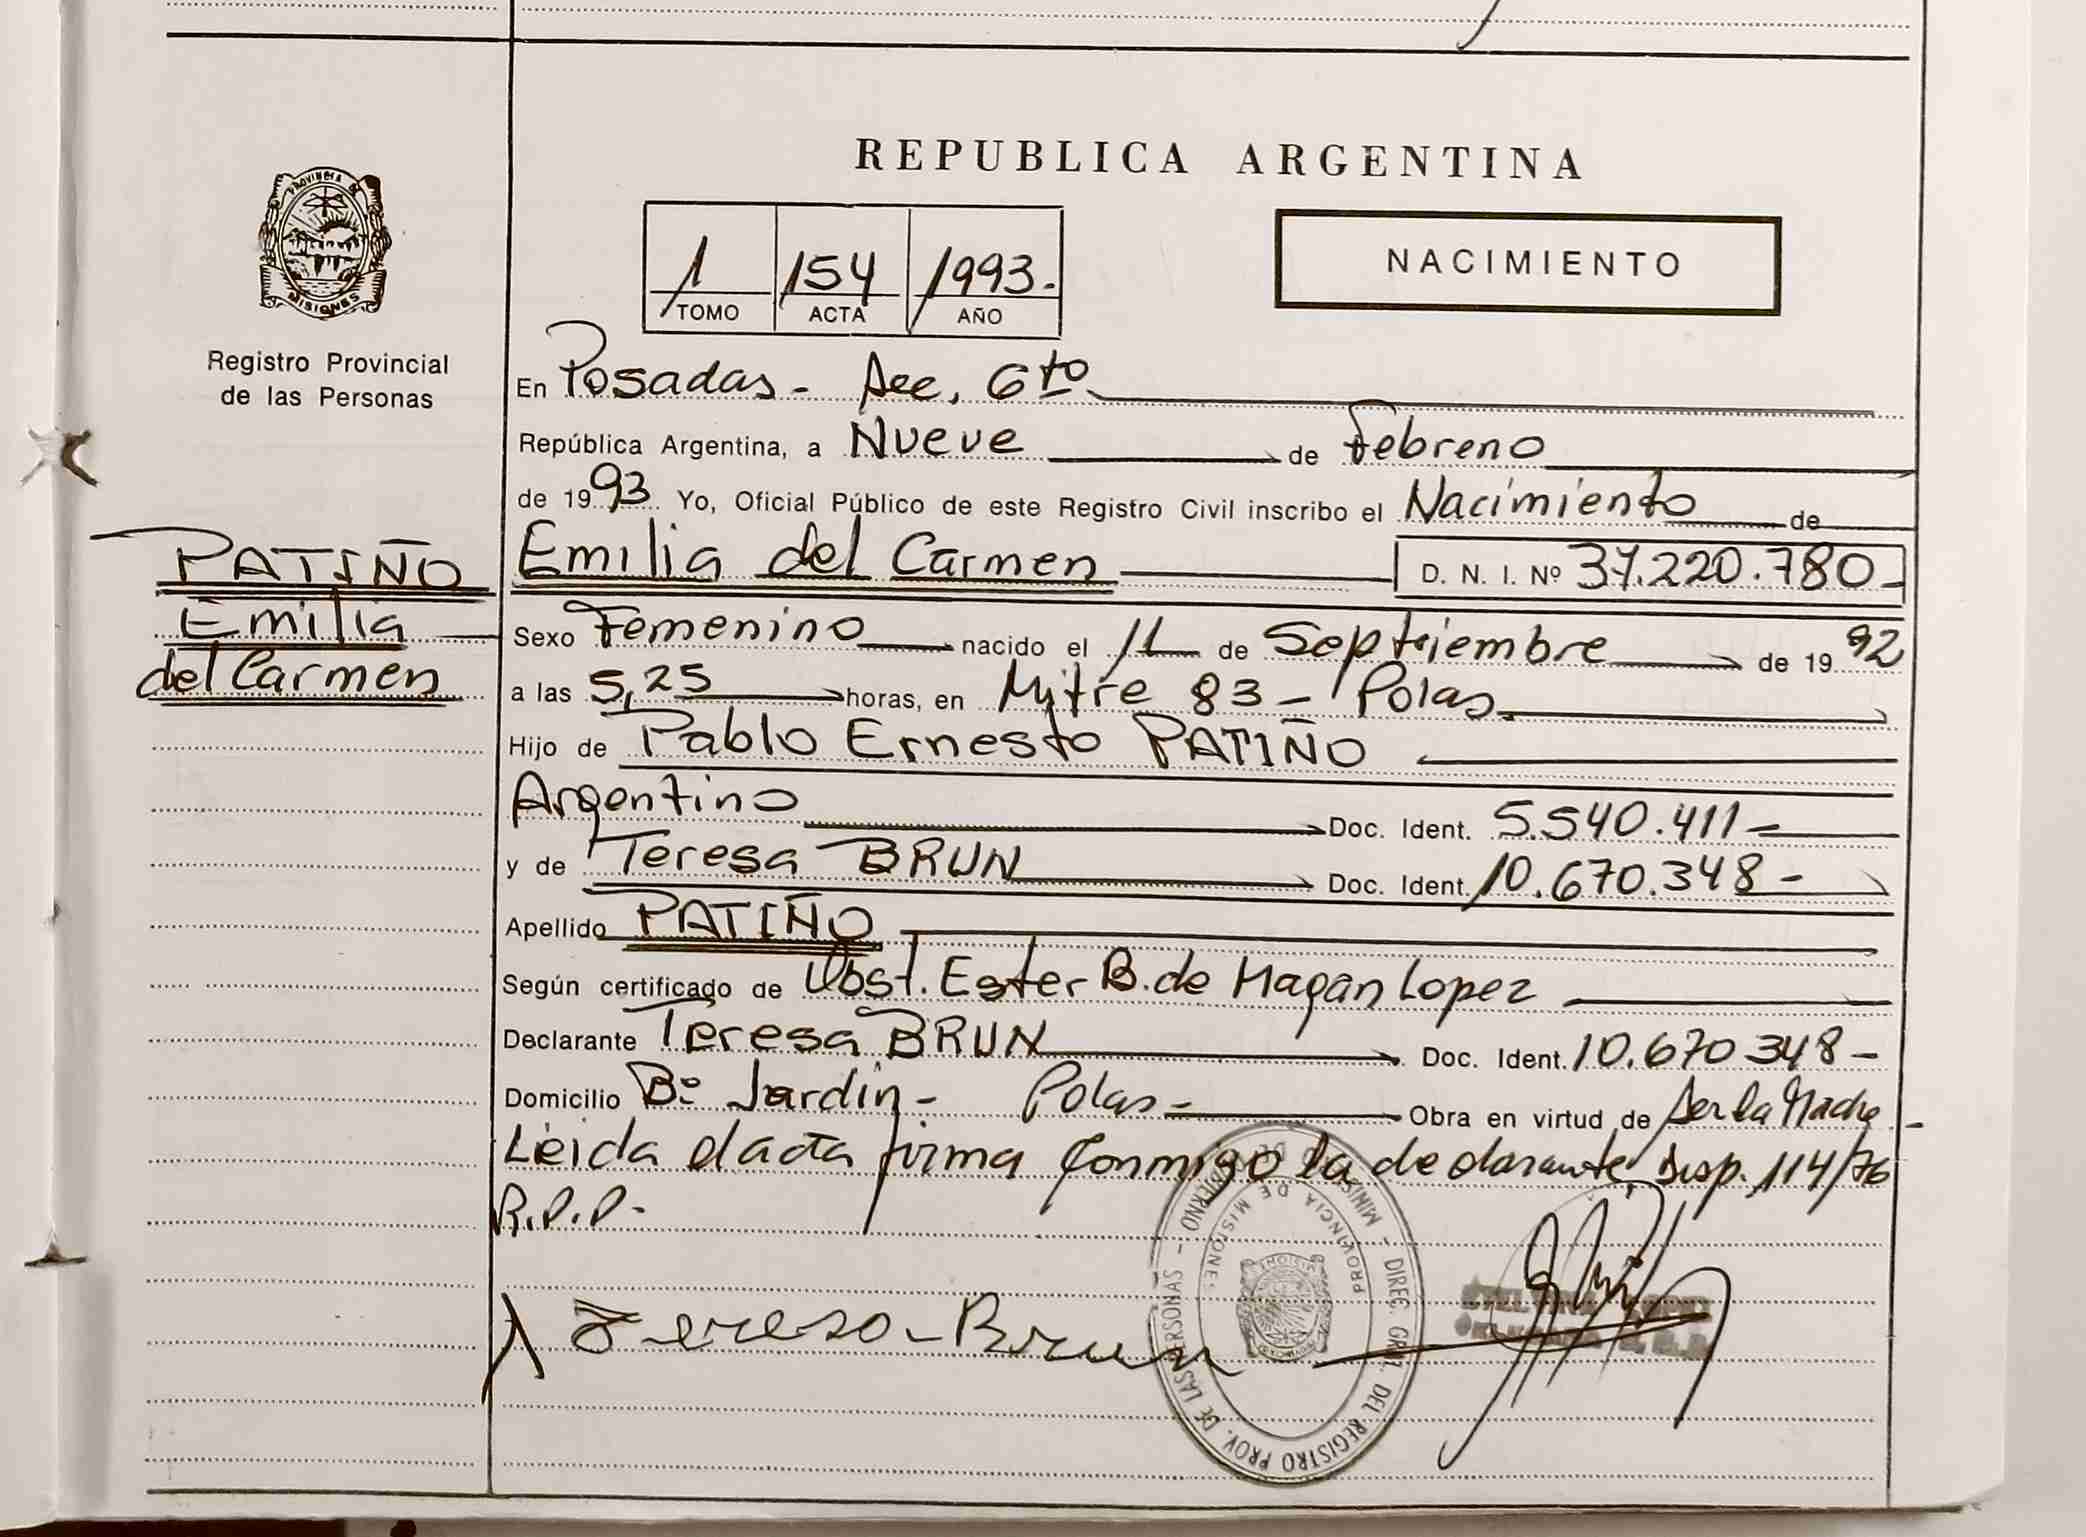 REPUBLICA ARGENTINA
PROVINCIA DE
MISIONES
Registro Provincial
de las Personas
1 154 1993.-
TOMO ACTA AÑO
NACIMIENTO
En Posadas - Sec. 6to
República Argentina, a Nueve de Febrero
de 1993 Yo, Oficial Público de este Registro Civil inscribo el Nacimiento de
PATIÑO
Emilia
del Carmen
Emilia del Carmen D. N. I. Nº 37.220.780-
Sexo Femenino nacido el 11 de Septiembre de 1992
a las 5,25 horas, en Mitre 83 - Pdas.
Hijo de Pablo Ernesto PATIÑO
Argentino Doc. Ident. 5.540.411-
y de Teresa BRUN Doc. Ident. 10.670.348-
Apellido PATIÑO
Según certificado de Obst. Ester B. de Hagan Lopez
Declarante Teresa BRUN Doc. Ident. 10.670348-
Domicilio Bº Jardin - Pdas - Obra en virtud de Ser la Madre -
Leida el acta firma conmigo la declarante Disp. 114/76
R.P.P.-
Teresa Brun
MINISTERIO DE GOBIERNO - DIREC. GRAL. DEL REGISTRO PROV. DE LAS PERSONAS -
PROVINCIA DE MISIONES